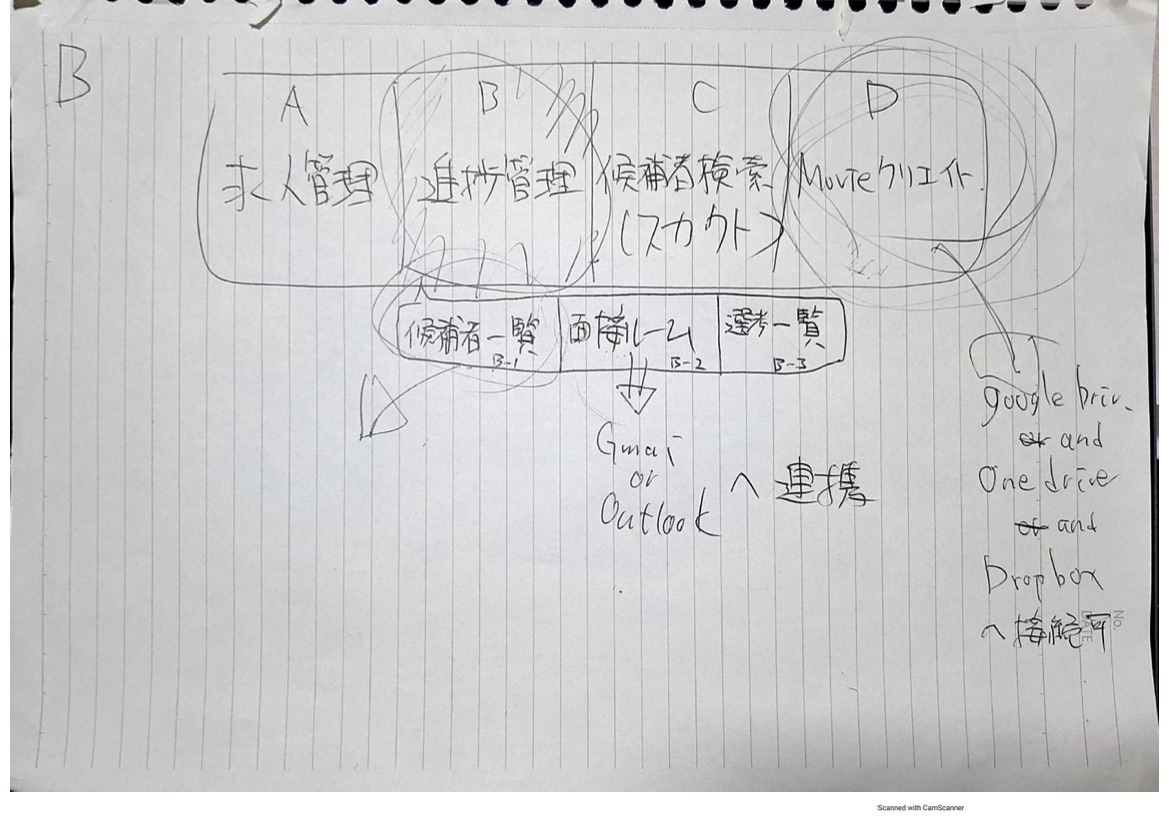 B
A
B
C
D
求人管理
進捗管理
候補者検索
(スカウト)
Movieクリエイト
候補者一覧
B-1
面接ルーム
B-2
選考一覧
B-3
Gmai
or
Outlook
へ連携
google driv.
or and
One drive
or and
Dropbox
へ接続可
NO.
DATE
Scanned with CamScanner